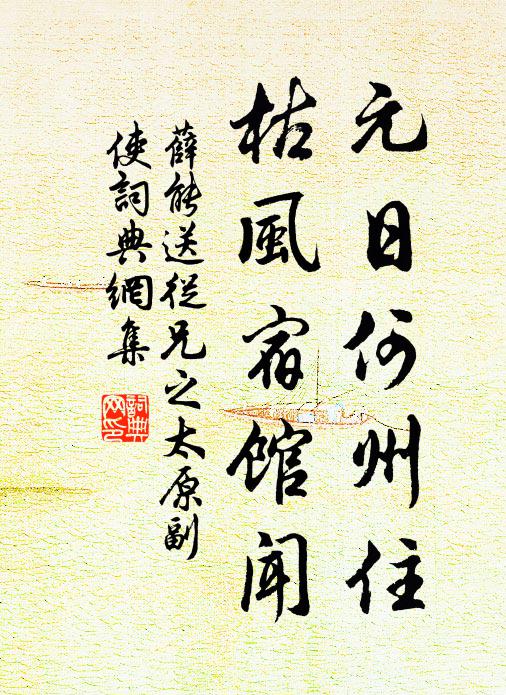 元日何州住
枯風宿館聞
薛能送従兄之太原副
使詞典網集
詞典
网印